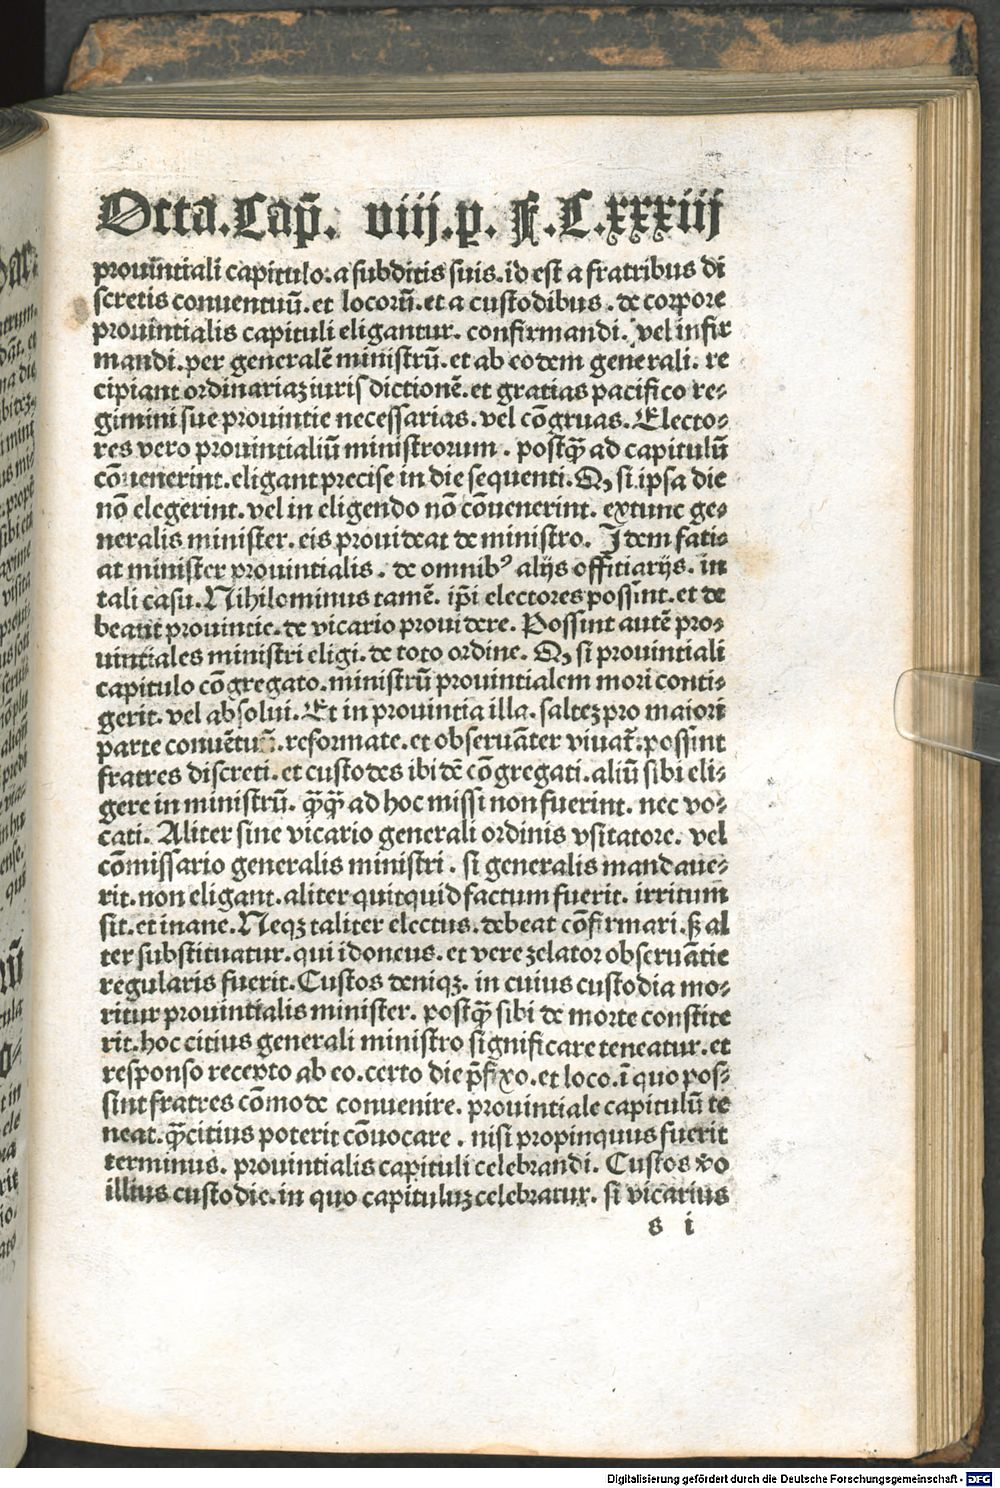 Octa. Cap̃. viij. p. F. C. xxxiij
prouintiali capitulo. a subditis suis. id est a fratribus di
scretis conuentuũ. et locorũ. et a custodibus. de corpore
prouintialis capituli eligantur. confirmandi. vel infir
mandi. per generalẽ ministrũ. et ab eodem generali. re
cipiant ordinariaꝫ iuris dictionẽ. et gratias pacifico re⸗
gimini sue prouintie necessarias. vel cõgruas. Electo⸗
res vero prouintialiũ ministrorum. postq̃ ad capitulũ
cõuenerint. eligant precise in die sequenti. Qꝫ si ipsa die
nõ elegerint. vel in eligendo nõ cõuenerint. extunc ge⸗
neralis minister. eis prouideat de ministro. Idem fati⸗
at minister prouintialis. de omnibꝰ alijs offitiarijs. in
tali casu. Nihilominus tamẽ. ip̃i electores possint. et de
beant prouintie. de vicario prouidere. Possint autẽ pro⸗
uintiales ministri eligi. de toto ordine. Qꝫ si prouintiali
capitulo cõgregato. ministrũ prouintialem mori conti⸗
gerit. vel absolui. Et in prouintia illa. salteꝫ pro maiori
parte conuẽtuũ. reformate. et obseruãter viuat̃. possint
fratres discreti. et custodes ibidẽ cõgregati. aliũ sibi eli⸗
gere in ministrũ. q̃q̃ ad hoc missi non fuerint. nec vo⸗
cati. Aliter sine vicario generali ordinis vsitatore. vel
cõmissario generalis ministri. si generalis mandaue⸗
rit. non eligant. aliter quitquid factum fuerit. irritum
sit. et inane. Neqꝫ taliter electus. debeat cõfirmari. sꝫ al
ter substituatur. qui idoneus. et vere zelator obseruãtie
regularis fuerit. Custos deniqꝫ. in cuius custodia mo⸗
ritur prouintialis minister. postq̃ sibi de morte constite
rit. hoc citius generali ministro significare teneatur. et
responso recepto ab eo. certo die p̃fixo. et loco. ĩ quo pos⸗
sint fratres cõmode conuenire. prouintiale capitulũ te
neat. q̃citius poterit cõuocare. nisi propinquus fuerit
terminus. prouintialis capituli celebrandi. Custos ṽo
illius custodie. in quo capituluꝫ celebratur. si vicarius
s i
Digitalisierung gefördert durch die Deutsche Forschungsgemeinschaft - DFG